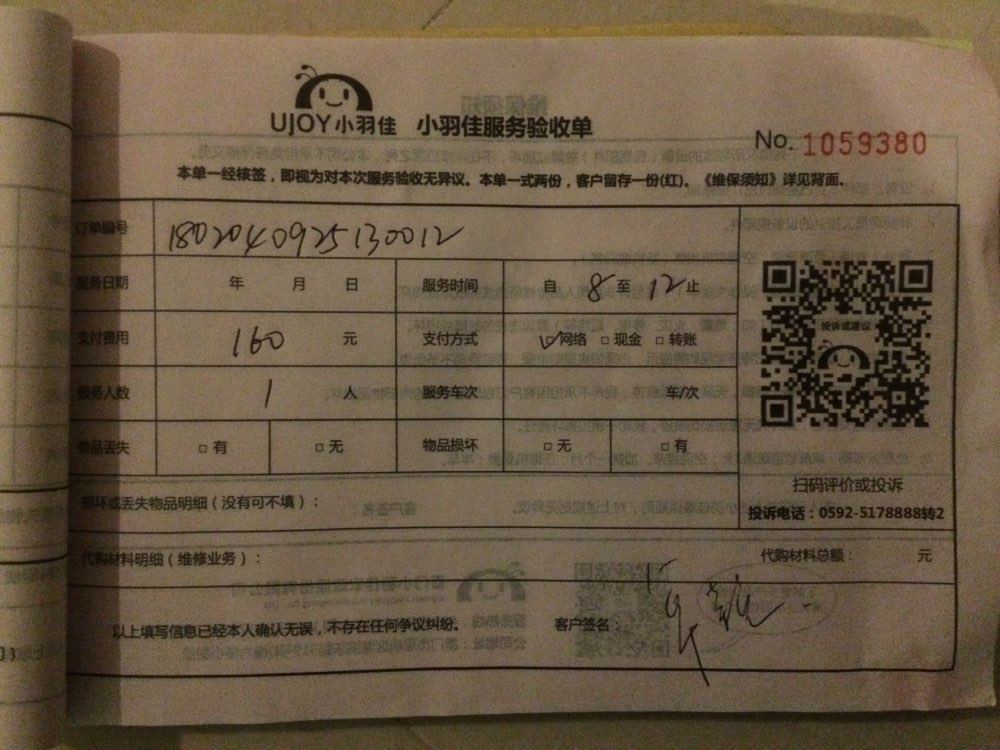 UJOY小羽佳 小羽佳服务验收单
No. 1059380
本单一经核签，即视为对本次服务验收无异议。本单一式两份，客户留存一份(红)。《维保须知》详见背面。
订单编号 1802040925130012
服务日期 年 月 日 服务时间 自 8 至 12 止
支付费用 160 元 支付方式 网络 现金 转账
服务人数 1 人 服务车次 车/次
物品丢失 有 无 物品损坏 无 有
投诉或建议
扫码评价或投诉
投诉电话：0592-5178888转2
损坏或丢失物品明细（没有可不填）：
代购材料明细（维修业务）： 代购材料总额： 元
以上填写信息已经本人确认无误，不存在任何争议纠纷。 客户签名：